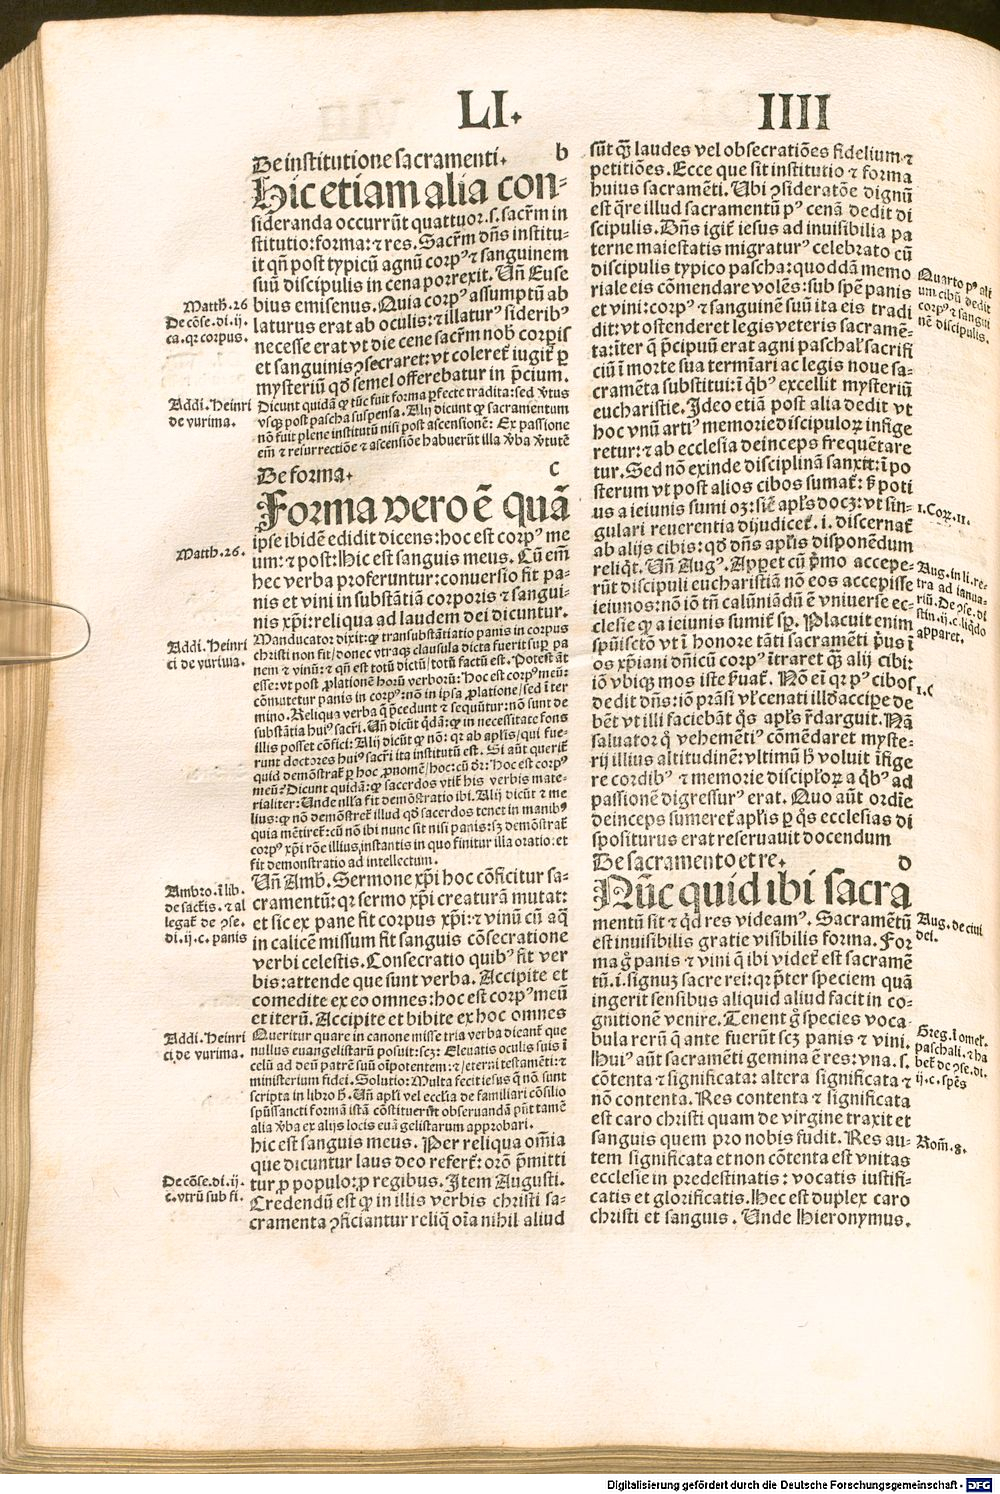 LI. IIII
De institutione sacramenti. b
Hic etiam alia con-
sideranda occurrūt quattuor .s. sacr̄m in
stitutio: forma: ⁊ res. Sacr̄m dn̄s institu-
it qn̄ post typicū agnū corpꝰ ⁊ sanguinem
suū discipulis in cena porrexit. Un̄ Euse
bius emisenus. Quia corpꝰ assumptū ab
laturus erat ab oculis: ⁊ illaturꝰ sideribꝰ
necesse erat vt die cene sacr̄m nob̄ corpis
et sanguinis ꝯsecraret: vt coleret᷑ iugit᷑ ꝑ
mysteriū qd̄ semel offerebatur in p̄cium.
Dicunt quidā ꝙ tūc fuit forma ꝑfecte tradita: sed v̄tus
vsqꝫ post pascha suspensa. Alij dicunt ꝙ sacramentum
nō fuit plene institutū nisi post ascensionē: Ex passione
em̄ ⁊ resurrectiōe ⁊ ascensiōe habuerūt illa v̄ba v̄tutē
De forma. c
Forma vero ē quā
ipse ibidē edidit dicens: hoc est corpꝰ me
um: ⁊ post: Hic est sanguis meus. Cū em̄
hec verba proferuntur: conuersio fit pa-
nis et vini in substātiā corporis ⁊ sangui-
nis xp̄i: reliqua ad laudem dei dicuntur.
Manducator dixit: ꝙ transubstātiatio panis in corpus
christi non fit/ donec vtraqꝫ clausula dicta fuerit suꝑ pa
nem ⁊ vinū: ⁊ qn̄ est totū dictū/ totū factū est. Potest āt
esse: vt post ꝓlationē horū verborū: Hoc est corpꝰ meū:
cōmutetur panis in corpꝰ: nō in ipsa ꝓlatione/ sed ī ter
mino. Reliqua verba q̄ p̄cedunt ⁊ sequūtur: nō sunt de
substātia huiꝰ sacr̄i. Un̄ dicūt q̄dā: ꝙ in necessitate fons
illis posset cōfici: Alij dicūt ꝙ nō: qr ab apl̄is/ qui fue-
runt doctores huiꝰ sacr̄i ita institutū est. Si aūt querit᷑
quid demōstrat᷑ ꝑ hoc ꝓnomē/ hoc: cū dr̄: Hoc est corpꝰ
meū? Dicunt quidā: ꝙ sacerdos vtit᷑ his verbis mate-
rialiter: Unde nll̄a fit demōstratio ibi. Alij dicūt ⁊ me
lius: ꝙ nō demōstret᷑ illud qd̄ sacerdos tenet in manibꝰ
quia mētiret᷑: cū nō ibi nunc sit nisi panis: sꝫ demōstrat᷑
corpꝰ xp̄i rōe illius instantis in quo finitur illa oratio: et
fit demonstratio ad intellectum.
Un̄ Amb̄. Sermone xp̄i hoc cōficitur sa-
cramentū: qr sermo xp̄i creaturā mutat:
et sic ex pane fit corpus xp̄i: ⁊ vinū cū aq̄
in calicē missum fit sanguis cōsecratione
verbi celestis. Consecratio quibꝰ fit ver
bis: attende que sunt verba. Accipite et
comedite ex eo omnes: hoc est corpꝰ meū
et iterū. Accipite et bibite ex hoc omnes
Queritur quare in canone misse tria verba dicant᷑ que
nullus euangelistarū posuit: scꝫ: Eleuatis oculis suis ī
celū ad deū patrē suū oīpotentem: ⁊/ eterni testamēti: ⁊
ministerium fidei. Solutio: Multa fecit iesus q̄ nō sunt
scripta in libro h̄. Un̄ apl̄i vel ecclia de familiari cōsilio
spūssancti formā istā cōstituerūt obseruandā pn̄t tamē
alia v̄ba ex alijs locis euāgelistarum approbari.
hic est sanguis meus. Per reliqua om̄ia
que dicuntur laus deo refert᷑: orō p̄mitti
tur ꝓ populo: ꝓ regibus. Item Augusti.
Credendū est ꝙ in illis verbis christi sa-
cramenta ꝯficiantur reliq̄ oīa nihil aliud
Matth. 26
De cōse. di. ij.
ca. qr corpus.
Addi. Heinri
de vurima.
Matth. 26.
Addi. Heinri
ci de vurima.
Ambro. ī lib.
de sacr̄is. ⁊ al
legat᷑ de ꝯse.
di. ij. c. panis
Addi. Heinri
ci de vurima.
De cōse. di. ij.
c. vtrū sub fi.
sūt qꝫ̄ laudes vel obsecratiōes fidelium ⁊
petitiōes. Ecce que sit institutio ⁊ forma
huius sacramēti. Ubi ꝯsideratōe dignū
est q̄re illud sacramentū pꝰ cenā dedit di
scipulis. Dn̄s igit᷑ iesus ad inuisibilia pa
terne maiestatis migraturꝰ celebrato cū
discipulis typico pascha: quoddā memo
riale eis cōmendare volēs: sub spē panis
et vini: corpꝰ ⁊ sanguinē suū ita eis tradi
dit: vt ostenderet legis veteris sacramē-
ta: īter q̄ p̄cipuū erat agni paschal᷑ sacrifi
ciū ī morte sua termīari ac legis noue sa-
cramēta substitui: ī q̄bꝰ excellit mysteriū
eucharistie. Ideo etiā post alia dedit vt
hoc vnū artiꝰ memorie discipuloꝝ infige
retur: ⁊ ab ecclesia deinceps frequētare
tur. Sed nō exinde disciplinā sanxit: ī po
sterum vt post alios cibos sumat᷑: ꝩ̄ poti
us a ieiunis sumi oꝫ: sic̄ apl̄s docꝫ: vt sin-
gulari reuerentia dijudicet᷑ .i. discernat᷑
ab alijs cibis: qd̄ dn̄s apl̄is disponēdum
reliq̄t. Un̄ Augꝰ. Apꝑet cū p̄mo accepe-
rūt discipuli eucharistiā nō eos accepisse
ieiunos: nō iō tn̄ calūniādū ē vniuerse ec-
clesie ꝙ a ieiunis sumit᷑ sꝑ. Placuit enim
spūiscto vt ī honore tāti sacramēti p̄us ī
os xp̄iani dn̄icū corpꝰ ītraret qꝫ̄ alij cibi:
iō vbiqꝫ mos iste ẜuat᷑. Nō ei qr pꝰ cibos
dedit dn̄s: iō prāsi vl᷑ cenati illd̄ accipe de
bēt vt illi faciebāt q̄s apl̄s r̄darguit. Nā
saluator q̄ vehemētiꝰ cōmēdaret myste-
rij illius altitudinē: vltimū h̄ voluit īfige
re cordibꝰ ⁊ memorie discipl̄oꝝ a q̄bꝰ ad
passionē digressurꝰ erat. Quo aūt ordīe
deinceps sumeret᷑ apl̄is ꝑ q̄s ecclesias di
spositurus erat reseruauit docendum
De sacramento et re. d
Nūc quid ibi sacra
mentū sit ⁊ qd̄ res videamꝰ. Sacramētū
est inuisibilis gratie visibilis forma. For
ma g̊ panis ⁊ vini q̄ ibi videt᷑ est sacramē
tū .i. signuꝫ sacre rei: qr p̄ter speciem quā
ingerit sensibus aliquid aliud facit in co-
gnitionē venire. Tenent g̊ species voca
bula rerū q̄ ante fuerūt scꝫ panis ⁊ vini.
Huiꝰ aūt sacramēti gemina ē res: vna .s.
cōtenta ⁊ significata: altera significata ⁊
nō contenta. Res contenta ⁊ significata
est caro christi quam de virgine traxit et
sanguis quem pro nobis fudit. Res au-
tem significata et non cōtenta est vnitas
ecclesie in predestinatis: vocatis iustifi-
catis et glorificatis. Hec est duplex caro
christi et sanguis. Unde Hieronymus.
Quarto pꝰ ali
um cibū dedit
corpꝰ ⁊ sangui
nē discipulis.
1. Coꝝ. 11.
Aug. in li. re-
tra ad ianua-
riū. De ꝯse. di
stin. ij. c. liq̄do
apparet.
Aug. de ciui
dei.
Greg. ī omel᷑.
paschali. ⁊ ha
bet᷑ de ꝯse. di.
ij. c. sp̄es
Rom̄. 8.
Digitalisierung gefördert durch die Deutsche Forschungsgemeinschaft - DFG